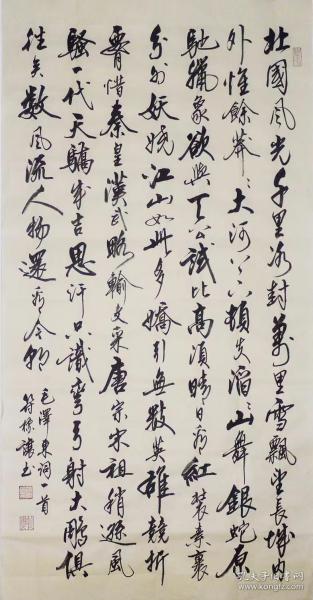 北國風光千里冰封萬里雪飄望長城內
外惟餘莽〻大河上下頓失滔〻山舞銀蛇原
馳蠟象欲與天公試比高須晴日看紅裝素裹
分外妖嬈江山如此多嬌引無數英雄競折
腰惜秦皇漢武略輸文采唐宗宋祖稍遜風
騷一代天驕成吉思汗只識彎弓射大鵰俱
往矣數風流人物還看今朝
毛澤東詞一首